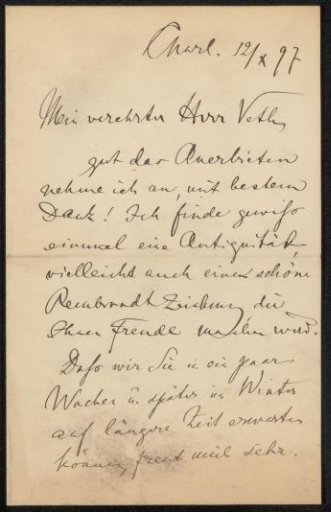 Charl. 12/X 97
Mein verehrter Herr Veth,
gut das Anerbieten
nehme ich an, mit bestem
Dank! Ich finde gewiss
einmal eine Antiquität,
vielleicht auch einen schöne
Rembrandt Zeichnung die
Ihnen Freude machen wird.
Dass wir Sie in ein paar
Wochen u. später im Winter
auf längere Zeit erwarten
können, freut mich sehr.